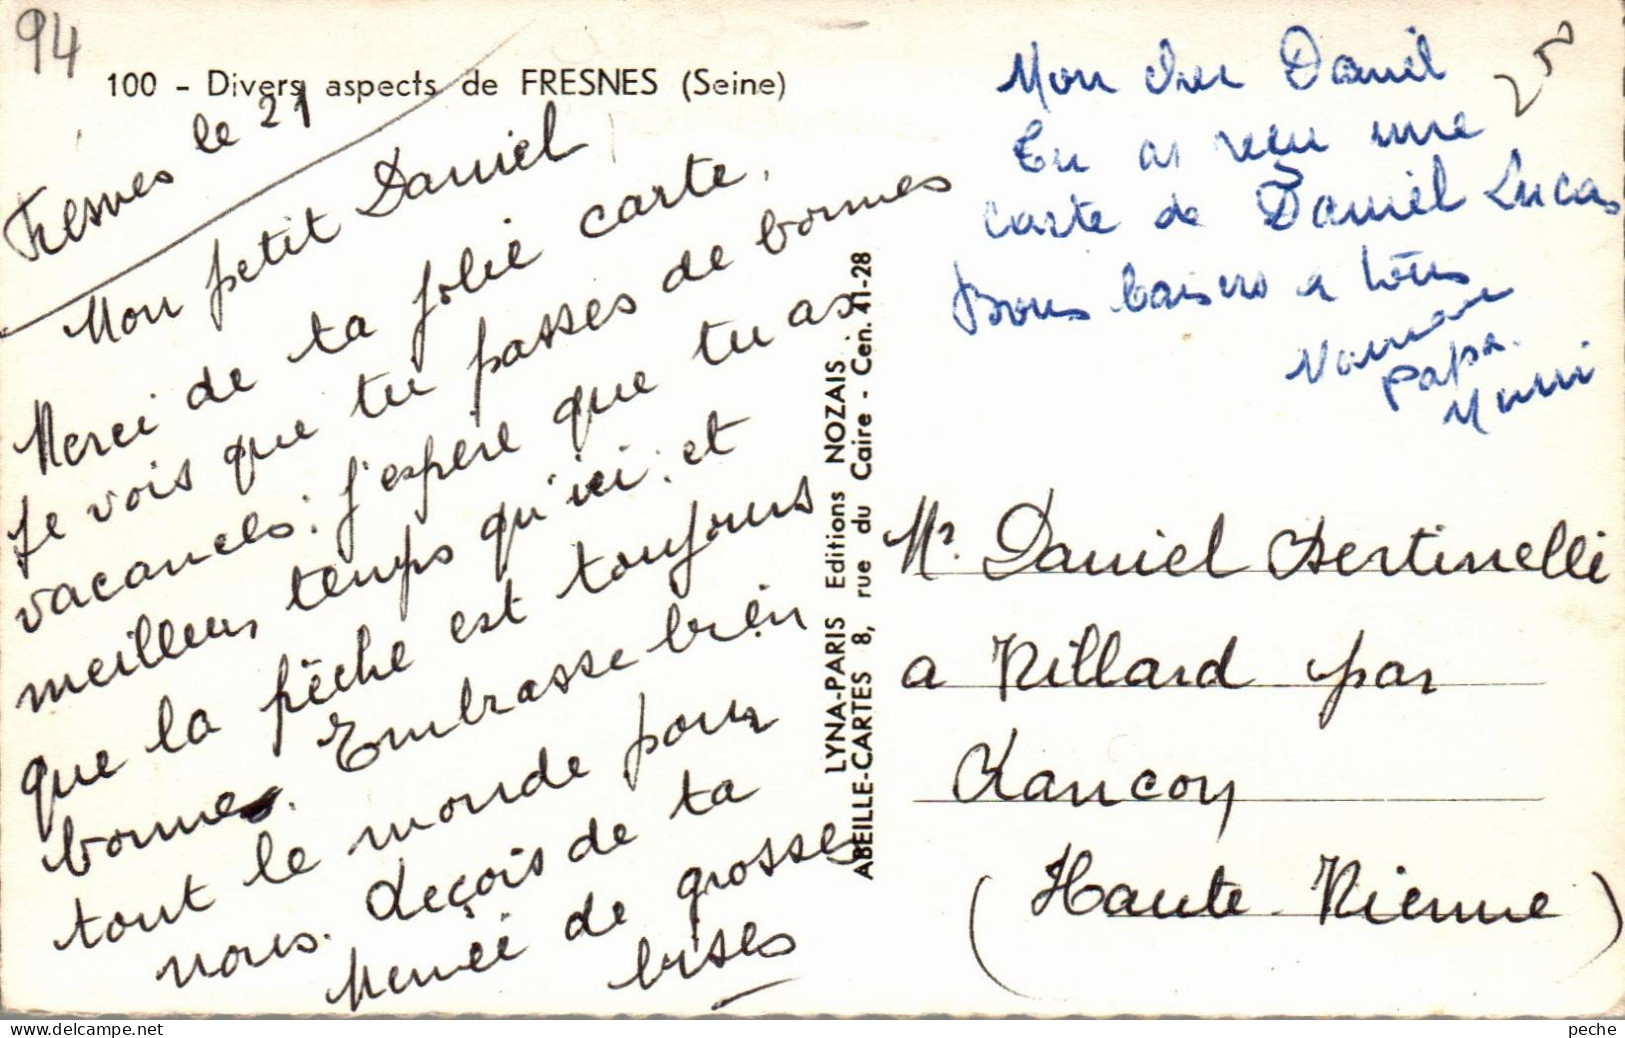 94
100 - Divers aspects de FRESNES (Seine)
Fresnes le 21
Mon petit Daniel
Merci de ta jolie carte.
Je vois que tu passes de bonnes
vacances. j'espère que tu as
meilleur temps qu'ici. et
que la pêche est toujours
bonne. Embrasse bien
tout le monde pour
nous. Reçois de ta
Mémée de grosses
bises
LYNA-PARIS Editions NOZAIS
ABEILLE-CARTES 8, rue du Caire - Cen. 41-28
Mon cher Daniel
Tu as reçu une
carte de Daniel Lucas
Bons baisers a tous
Maman
Papa.
250
Mr. Daniel Bertinelli
a Villard par
Rancon
(Haute-Vienne)
peche
www.delcampe.net